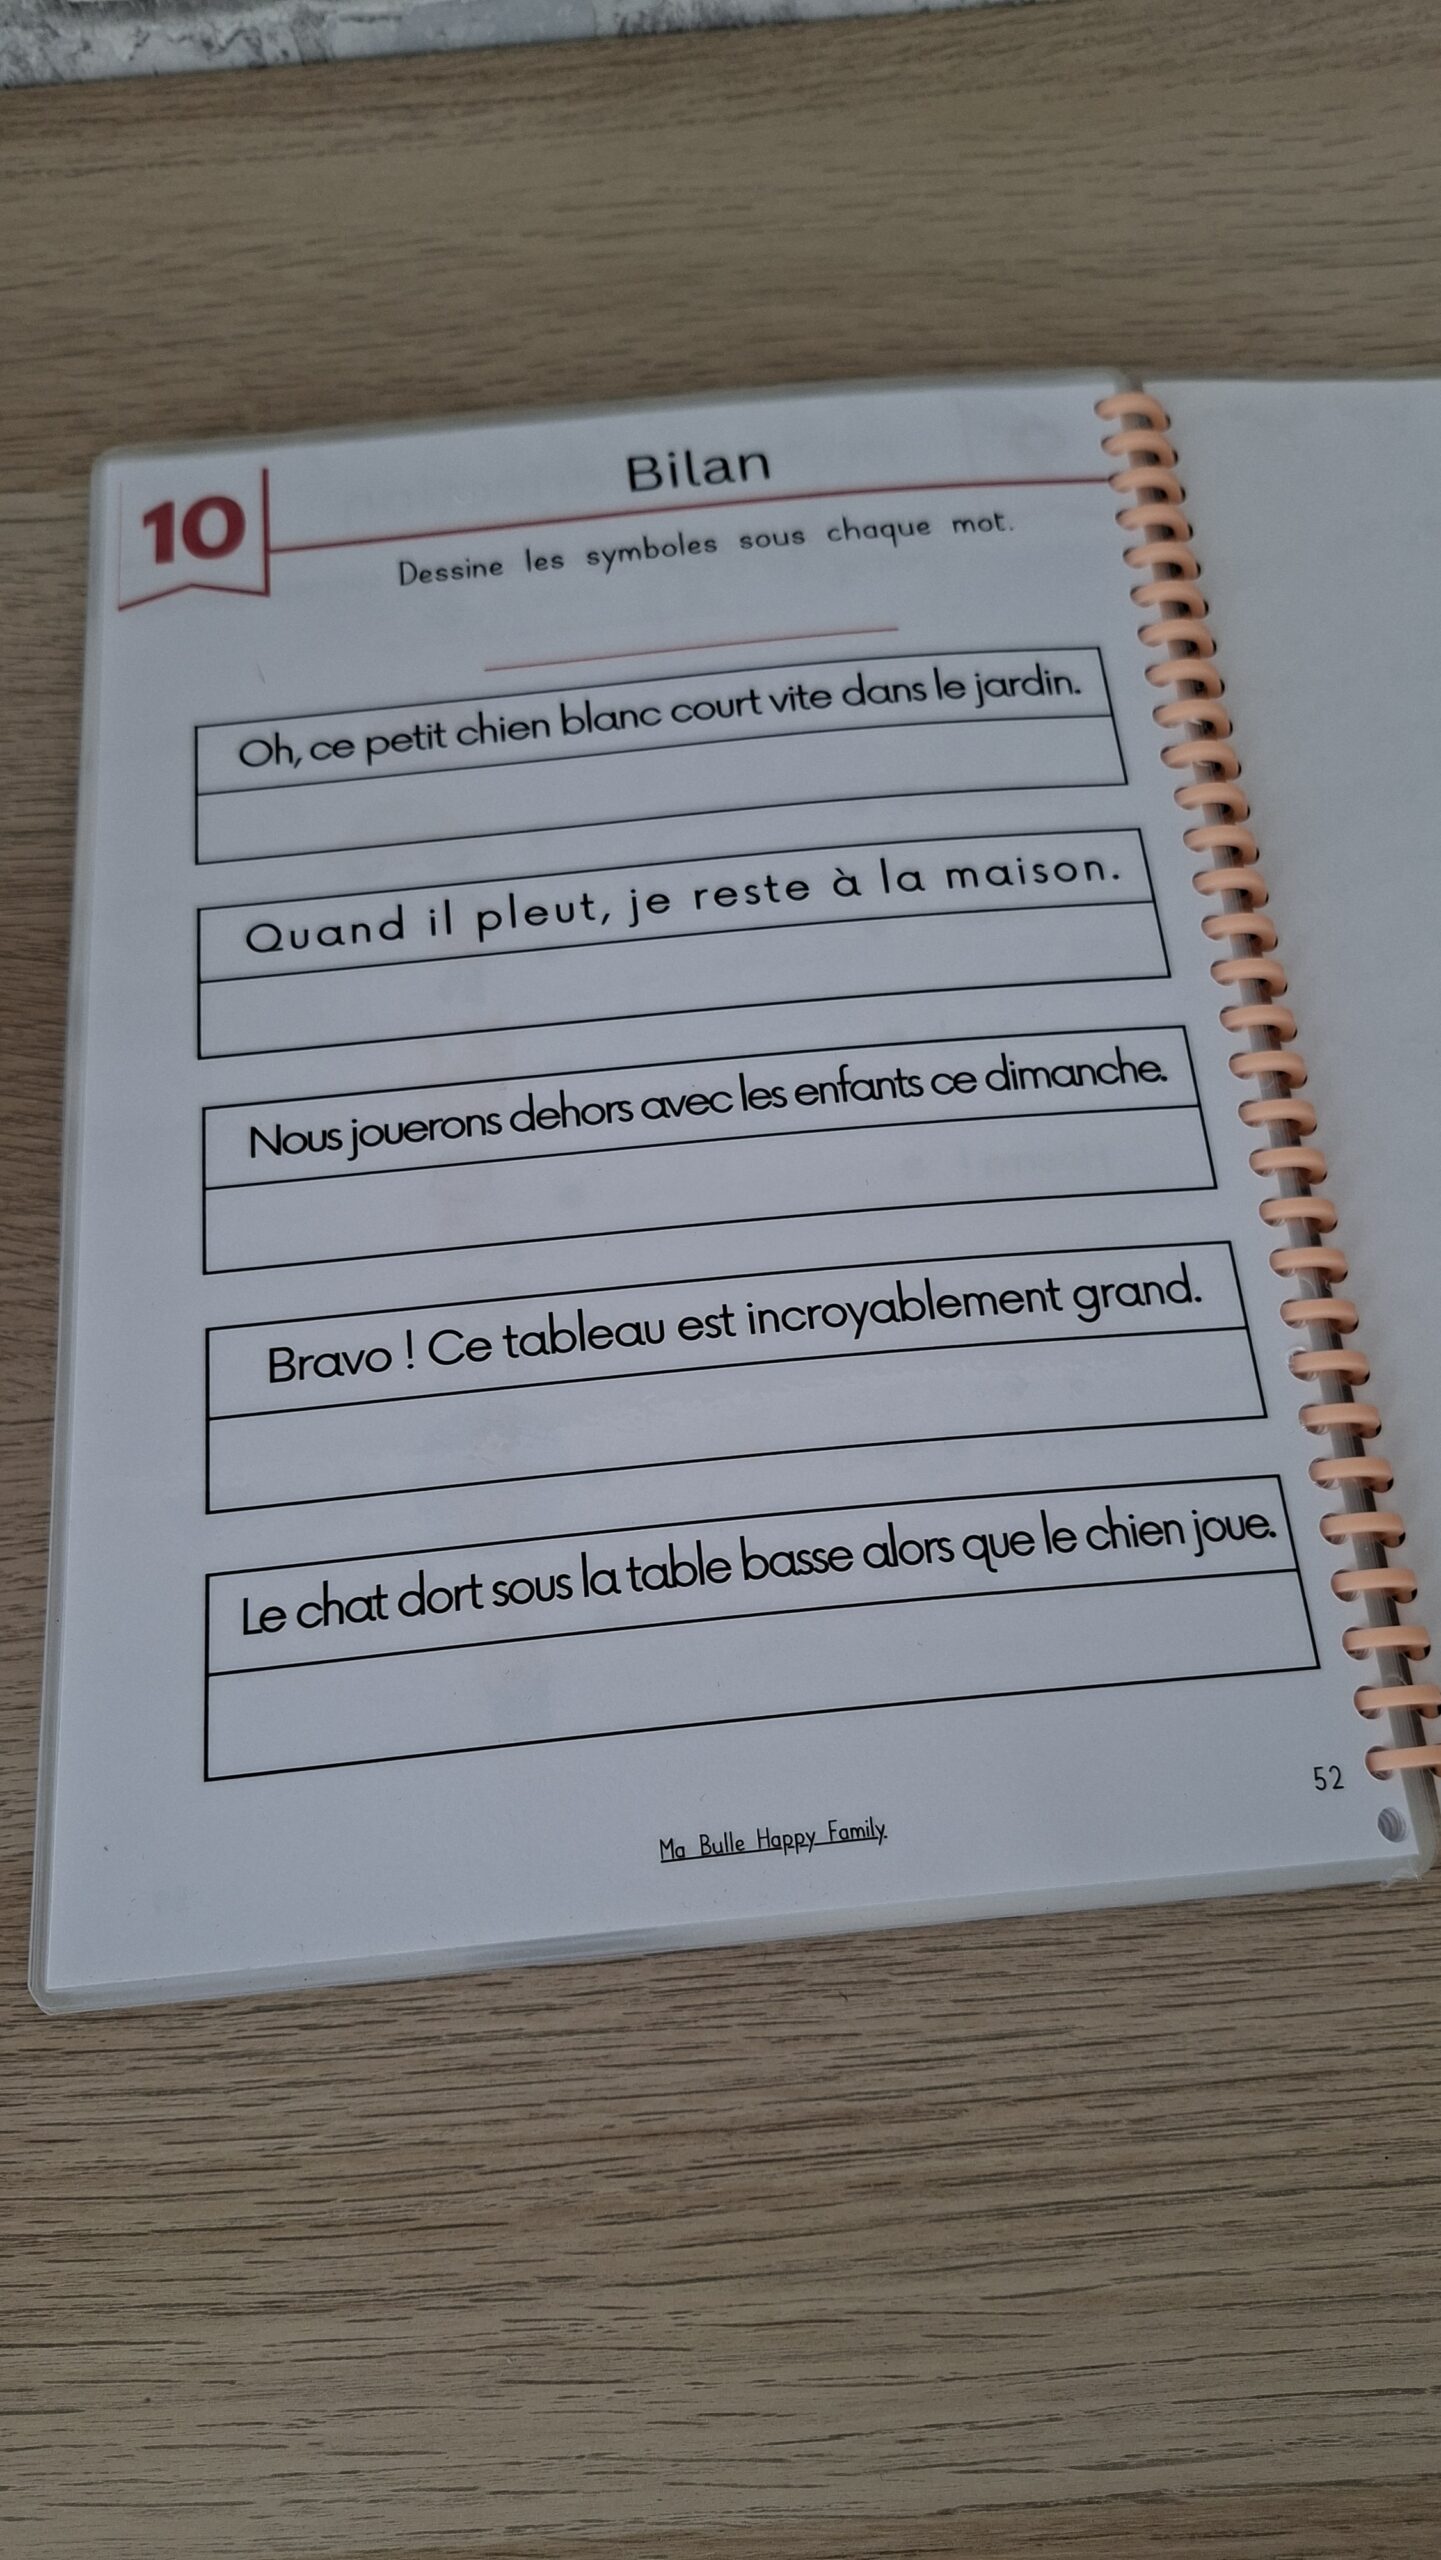 10
Bilan
Dessine les symboles sous chaque mot.
Oh, ce petit chien blanc court vite dans le jardin.
Quand il pleut, je reste à la maison.
Nous jouerons dehors avec les enfants ce dimanche.
Bravo ! Ce tableau est incroyablement grand.
Le chat dort sous la table basse alors que le chien joue.
52
Ma Bulle Happy Family